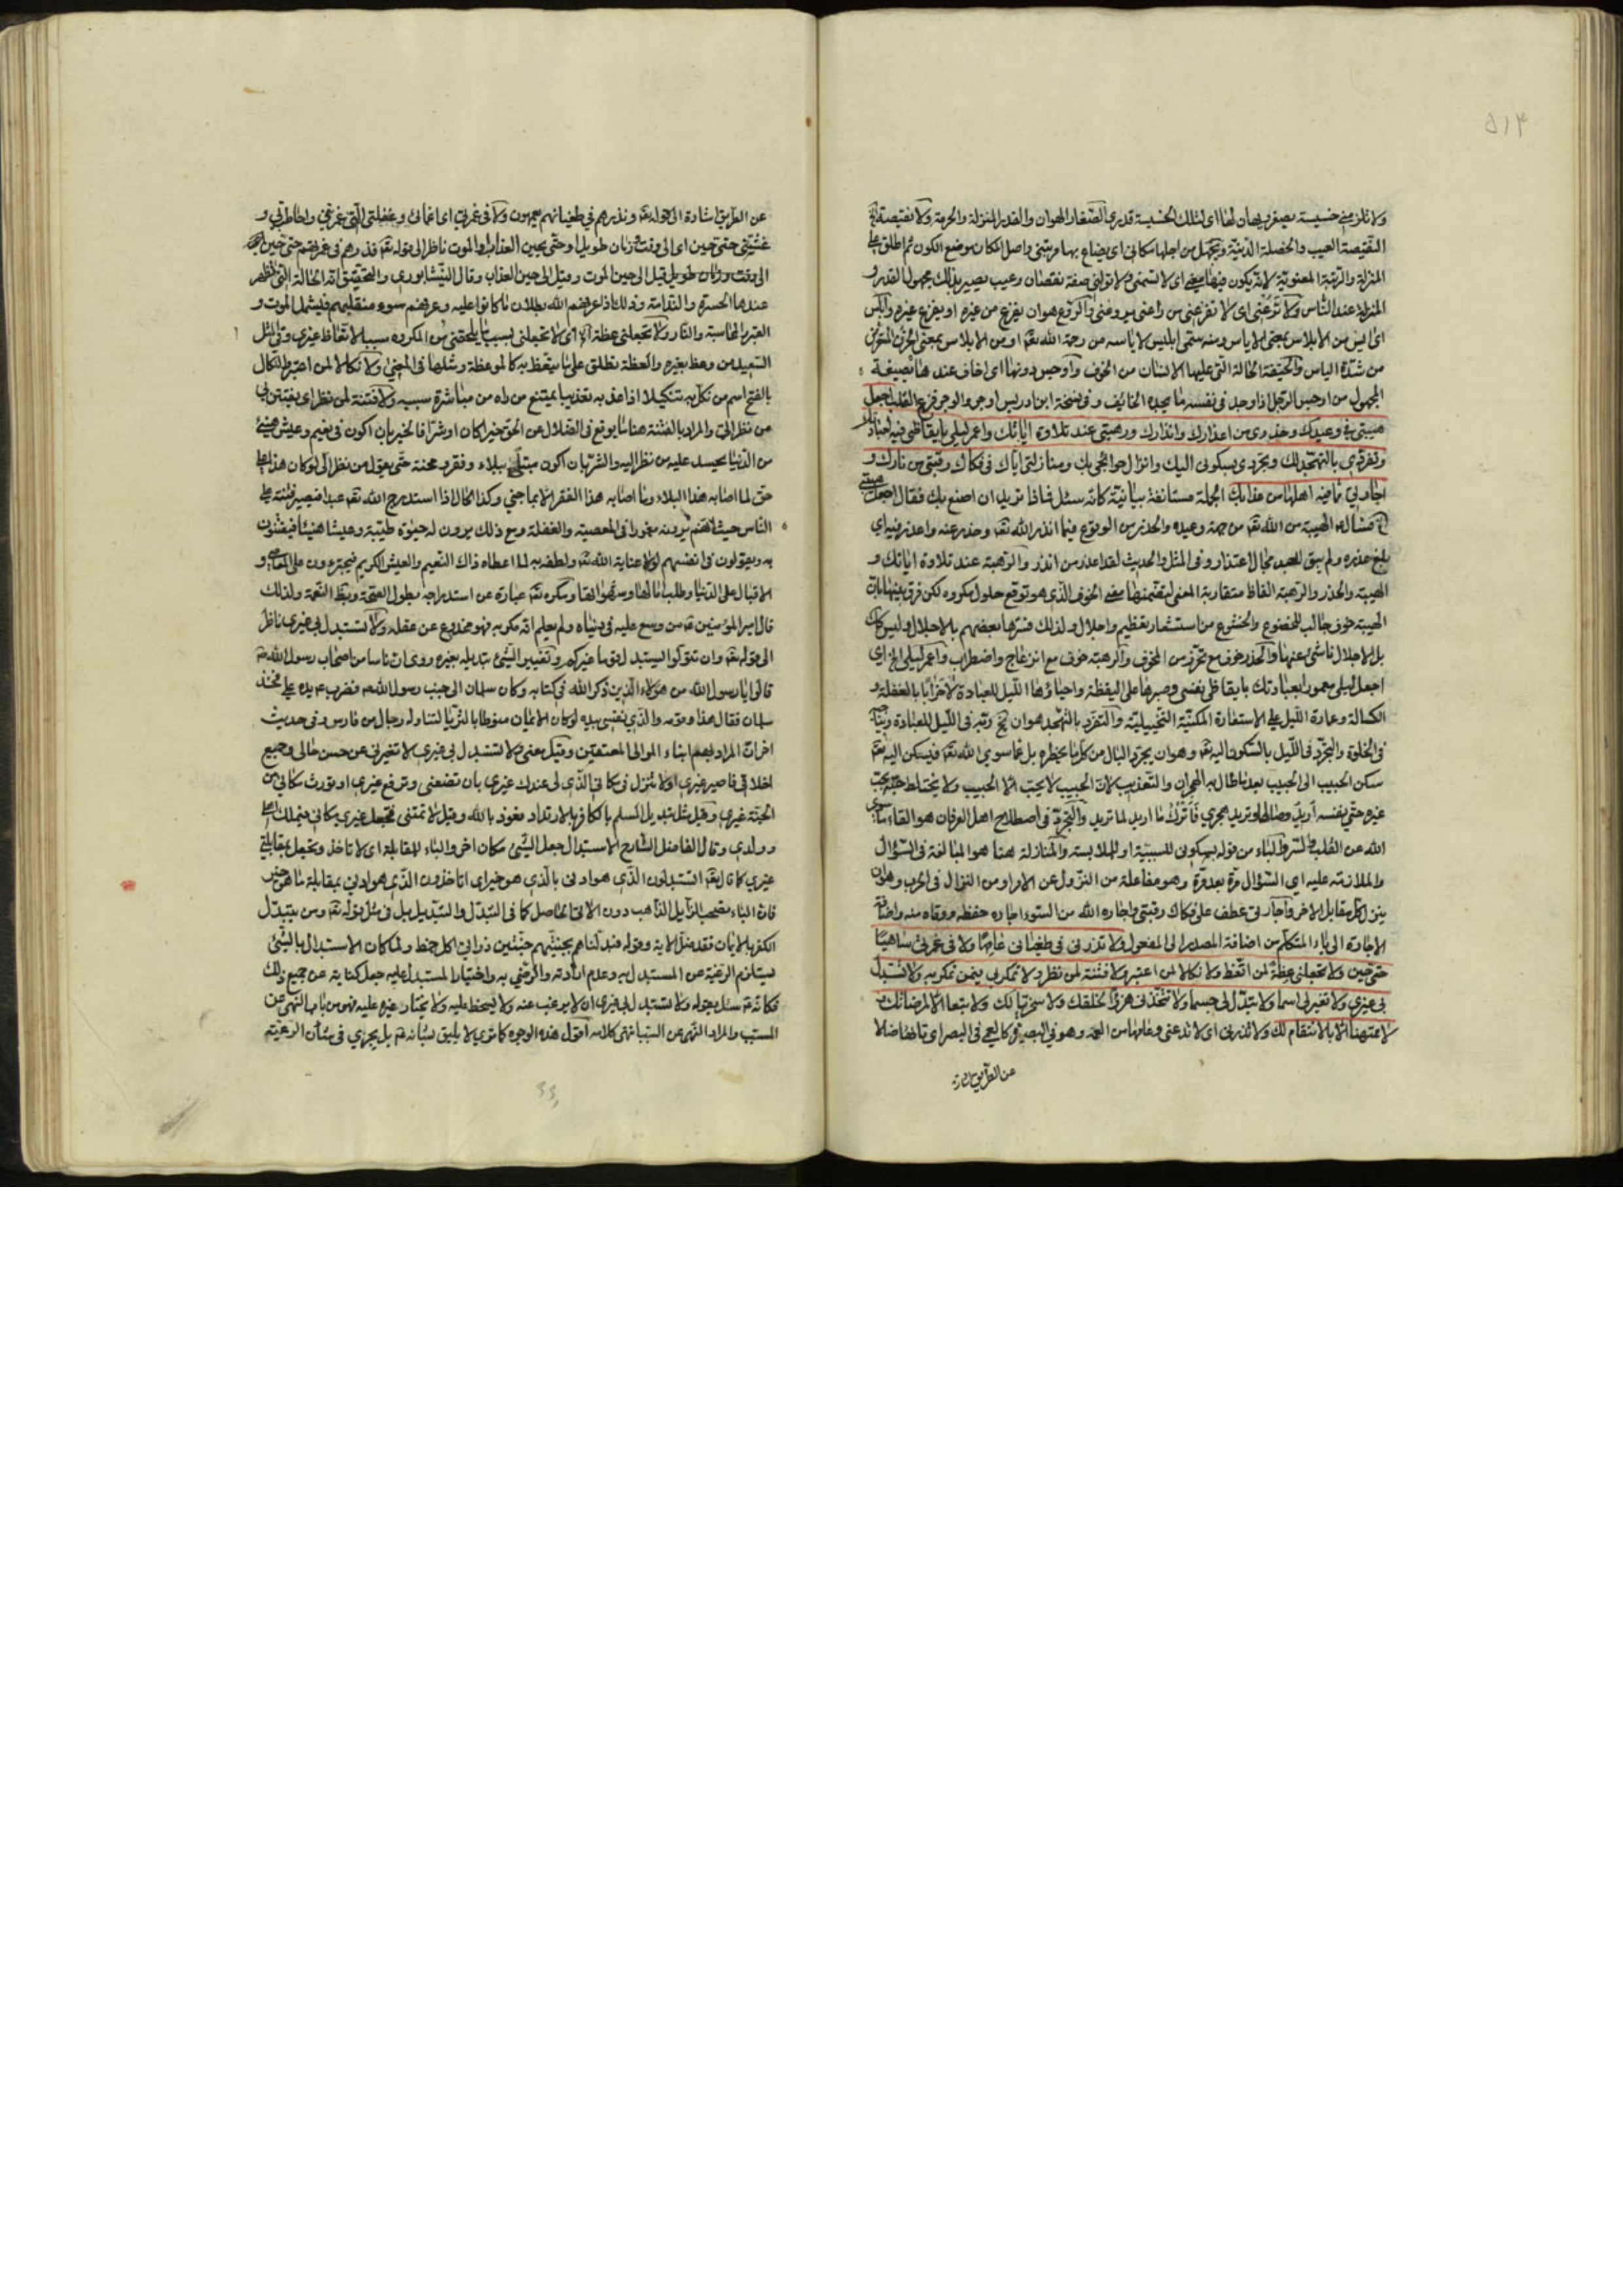 ٥١٣
ولا تلزمني خسيسة يصغر بها اي لتلك الخسيسة قدري الصغار الهوان والقدر المنزلة والحرمة ولا نقيصة
النقيصة العيب والخصلة الدنية ويجهل من اجلها مكاني اي يضاع بها مرتبتي واصل المكان موضع الكون ثم اطلق على
المنزلة والرتبة المعنوية لا تسمني ولا تولني صفة نقصان وعيب يصير بذلك مجهول القدر و
المنزلة عند الناس ولا ترعني اي لا تفزعني من راعني يروعني والروع هو ان يفزع من غيره او يفزع غيره وابلس
اي ايس من الابلاس بمعنى الاياس ومنه سمي ابليس لاياسه من رحمة الله تعم او من الابلاس بمعنى الحزن المعترض
من شدة الياس والخيفة الحالة التي عليها الانسان من الخوف واوجس دونها اي اخاف عندها بصيغة
المجهول من اوجس الرجل اذا وجد في نفسه ما يجده الخائف وفي نسخة ابن ادريس اوجر والوجر فزع القلب اجعل
هيبتي في وعيدك وحذري من اعذارك وانذارك ورهبتي عند تلاوة اياتك واعمر ليلي بايقاظي فيه لعبادتك
وتفردي بالتهجد لك وتجردي بسكوني اليك وانزال حوائجي بك ومنازلتي اياك في فكاك رقبتي من نارك و
اجارتي مما فيه اهلها من عذابك الجملة مستانفة بيانية كانه سئل فماذا تريد ان اصنع بك فقال اجعل هيبتي
الخ الهيبة من الله تعم من جهة وعيده والحذر من الوقوع فيما انذر الله تعم وحذر عنه واعذر فيه اي
بلغ عذره ولم يبق للعبد مجال الاعتذار وفي المثل والحديث لقد اعذر من انذر والرهبة عند تلاوة اياتك و
الهيبة والحذر والرهبة الفاظ متقاربة المعنى لتضمنها معنى الخوف الذي هو توقع حلول مكروه لكن فرق بينها بان
الهيبة خوف جالب للخضوع والخشوع من استشعار تعظيم واجلال ولذلك فسرها بعضهم بالاجلال وليس كذلك
بل الاجلال ناشئ عنها والحذر خوف مع تحرز من المخوف والرهبة خوف مع انزعاج واضطراب واعمر ليلي الخ اي
اجعل ليلي معمورا بعبادتك بايقاظي نفسي وصبرها على اليقظة واحياؤها الليل للعبادة لا خرابا بالغفلة و
الكسالة وعمارة الليل على الاستعارة المكنية التخييلية والتفرد بالتهجد هو ان في الليل للعبادة
في الخلوة والتجرد في الليل بالسكون اليه تعم وهو ان يجرد البال من كل ما يخطره بل عما سوى الله تعم فيسكن اليه تعم
سكن الحبيب الى الحبيب بعد ما طال به الهجران والتعذيب لان الحبيب لا يحب الا الحبيب ولا يختلط حبه بحب
غيره حتى نفسه اريد وصاله ويريد هجري فاترك ما اريد لما يريد والتجرد في اصطلاح اهل العرفان هو القاء ما سوى
الله عن القلب والسر والباء من قوله بسكوني للسببية او للملابسة والمنازلة هنا هو المبالغة في السؤال
والملازمة عليه اي السؤال مرة بعد مرة وهو مفاعلة من النزول عن الامر او من النزال في الحرب وهو ان
ينزل كل مقابل الاخر واجارتي عطف على فكاك رقبتي واجاره الله من السوء اجارة حفظه ووقاه منه واضافة
الاجارة الى ياء المتكلم من اضافة المصدر الى المفعول ولا تذرني في طغياني عامها ولا في غمرتي ساهيا
حتى حين ولا تجعلني عظة لمن اتعظ ولا نكالا لمن اعتبر ولا فتنة لمن نظر ولا تمكر بي فيمن تمكر به ولا تستبدل
بي غيري ولا تغير لي اسما ولا تبدل لي جسما ولا تتخذني هزوا لخلقك ولا سخريا لك ولا تبعا الا لمرضاتك و
لا ممتهنا الا بالانتقام لك ولا تذرني اي لا تدعني وعامها من العمه وهو في البصيرة كالعمى في البصر اي تائها ضالا
عن الطريق اشارة
عن الطريق اشارة الى قوله تعم ونذرهم في طغيانهم يعمهون ولا في غمرتي اي انهماكي وغفلتي التي غمرتني واحاطت بي و
غشيتني حتى حين اي الى وقت وزمان طويل او حتى يحين العذاب او الموت ناظر الى قوله تعم فذرهم في غمرتهم حتى حين
الى وقت وزمان طويل قيل الى حين الموت وقيل الى حين العذاب وقال النيشابوري والتحقيق انه الحالة التي تظهر
عندها الحسرة والندامة وذلك اذا عرفهم الله بطلان ما كانوا عليه وعرفهم سوء منقلبهم فيشمل الموت و
القبر والمحاسبة والنار ولا تجعلني عظة اي لا تجعلني بسبب ما يلحقني من المكروه سببا لاتعاظ غيري وفي المثل
السعيد من وعظ بغيره والعظة تطلق على ما يتعظ به كالموعظة ومثلها في المعنى ولا نكالا لمن اعتبر والنكال
بالفتح اسم من نكل به تنكيلا اذا عذبه تعذيبا يمتنع من راه من مباشرة سببه ولا فتنة لمن نظر اي يفتتن بي
من نظر الي والمراد بالفتنة هنا ما يوقع في الضلال عن الحق خيرا كان او شرا فالخير بان اكون في نعيم وعيش هنيئ
من الدنيا يحسد عليه من نظر اليه والشر بان اكون مبتلى ببلاء وفقر ومحنة حتى يقول من نظر الي لو كان هذا على
حق لما اصابه هذا البلاء وما اصابه هذا الفقر الا بما جنى وكذا الحال اذا استدرج الله تعم عبدا فيصير فتنة على
الناس حيث انهم يرونه مغمورا في المعصية والغفلة ومع ذلك يرون له حيوة طيبة وعيشا هنيئا فيفتنون
به ويقولون في انفسهم لولا عناية الله تعم ولطفه به لما اعطاه ذاك النعيم والعيش الكريم فيجترءون على المعاصي و
الاقبال على الدنيا وطلب مالها ومكره تعم عبارة عن استدراجه بطول الصحة وتظاهر النعمة ولذلك
قال امير المؤمنين ع من وسع عليه في دنياه ولم يعلم انه مكر به فهو مخدوع عن عقله ولا تستبدل بي غيري ناظر
الى قوله تعم وان تتولوا يستبدل قوما غيركم وتغيير الشئ تبديله بغيره روي ان ناسا من اصحاب رسول الله ص
قالوا يا رسول الله من هؤلاء الذين ذكر الله في كتابه وكان سلمان الى جنب رسول الله ص فضرب ع يده على فخذ
سلمان فقال هذا وقومه والذي نفسي بيده لو كان الايمان منوطا بالثريا لتناوله رجال من فارس وفي حديث
اخر ان المراد بهم ابناء الموالي المعتقين وقيل معنى ولا تستبدل بي غيري لا تغيرني عن حسن حالي وجميع
اخلاقي فاصير غيري او لا تنزل في مكاني الذي لي عندك غيري بان تضعني وترفع غيري او تورث مكاني من
الجنة غيري وقيل مثل تبديل المسلم بالكافر بالارتداد نعوذ بالله وقيل لا تمتني فتجعل غيري مكاني فيملك اهلي
وولدي وقال الفاضل الشارح الاستبدال جعل الشئ مكان اخر والباء للمقابلة اي لا تاخذ وتجعل بمقابلة
غيري كما قال تعم اتستبدلون الذي هو ادنى بالذي هو خير اي اتاخذون الذي هو ادنى بمقابلة ما هو خير
فان الباء تصحب الزايل الذاهب دون الاتي الحاصل كما في التبدل والتبديل بل في مثل قوله تعم ومن يتبدل
الكفر بالايمان فقد ضل الاية وقوله وبدلناهم بجنتيهم جنتين ذواتي اكل خمط ولما كان الاستبدال بالشئ
يستلزم الرغبة عن المستبدل به وعدم ارادته والرضي به واختيار المستبدل عليه جعل كناية عن جميع ذلك
فكانه ع سئل بقوله ولا تستبدل بي غيري ان لا يرغب عنه ولا يسخط عليه ولا يختار غيره عليه فهو من باب النهي عن
المسبب والمراد النهي عن السبب انتهى كلامه اقول هذه الوجوه كما ترى لا يليق بشانه ع بل يجري في شأن الرعية